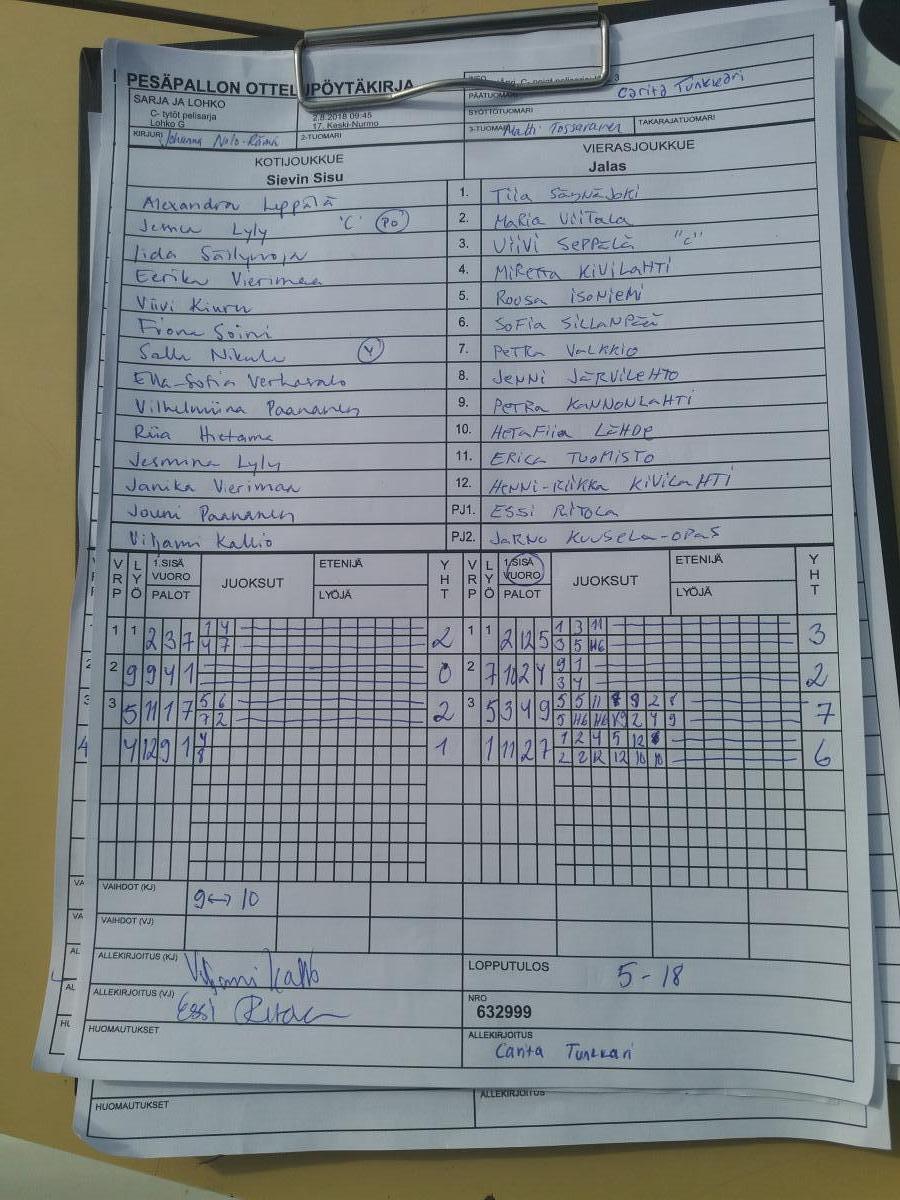 PESÄPALLON OTTELUPÖYTÄKIRJA
SARJA JA LOHKO
C- tytöt pelisarja
Lohko G
2.8.2018 09:45
17, Keski-Nurmo
PÄÄTUOMARI Carita Tunkkari
SYÖTTÖTUOMARI
KIRJURI Johanna
2-TUOMARI
3-TUOMARI Matti
TAKARAJATUOMARI
KOTIJOUKKUE VIERASJOUKKUE
Sievin Sisu Jalas
Alexandra Leppälä 1. Tiia SäynäJoki
Jemu Lyly "C" PO 2. MaRia Viitala
Iida 3. Viivi SePPäLä "C"
Eerika Vierimaa 4. MiRetta KiViLaHTi
Viivi Kinru 5. Roosa isoNiemi
Fiona Soini 6. SoFia SiLLaNPää
Salla Nikula V 7. PeTRa VaLKKio
Ella-Sofia Verkasalo 8. JeNNi JäRViLeHTo
Vilhelmiina Paananen 9. PeTRa KaNNoNLaHTi
Riia Hietama 10. HeTaFiia LäHDe
Jesmina Lyly 11. ERiCa TuoMiSTo
Janika Vierimaa 12. HeNNi-RiiKKa KiViLaHTi
Jouni Paananen PJ1. ESSi RiToLa
Viljami Kallio PJ2. JaRNo KuuSeLa-oPaS
VRP LYÖ 1.SISÄ VUORO PALOT JUOKSUT ETENIJÄ LYÖJÄ YHT VRP LYÖ 1.SISÄ VUORO PALOT JUOKSUT ETENIJÄ LYÖJÄ YHT
1 1 2 3 7 1 4 2 1 1 2 12 5 1 3 11 3
4 7 3 5 H6
2 9 9 4 1 0 2 7 10 2 4 9 1 2
3 4
3 5 11 1 7 5 6 2 3 5 3 4 9 5 5 11 8 8 2 8 7
7 2 5 H6 H6 2 4 9
4 12 9 1 4 1 1 11 2 7 1 2 4 5 12 6
8 2 2 12 12 10 10
VAIHDOT (KJ) 9↔10
VAIHDOT (VJ)
ALLEKIRJOITUS (KJ) Viljami Kallio
LOPPUTULOS 5-18
ALLEKIRJOITUS (VJ) Essi Ritola
NRO
632999
HUOMAUTUKSET
ALLEKIRJOITUS
Carita Tunkkari
HUOMAUTUKSET
ALLEKIRJOITUS